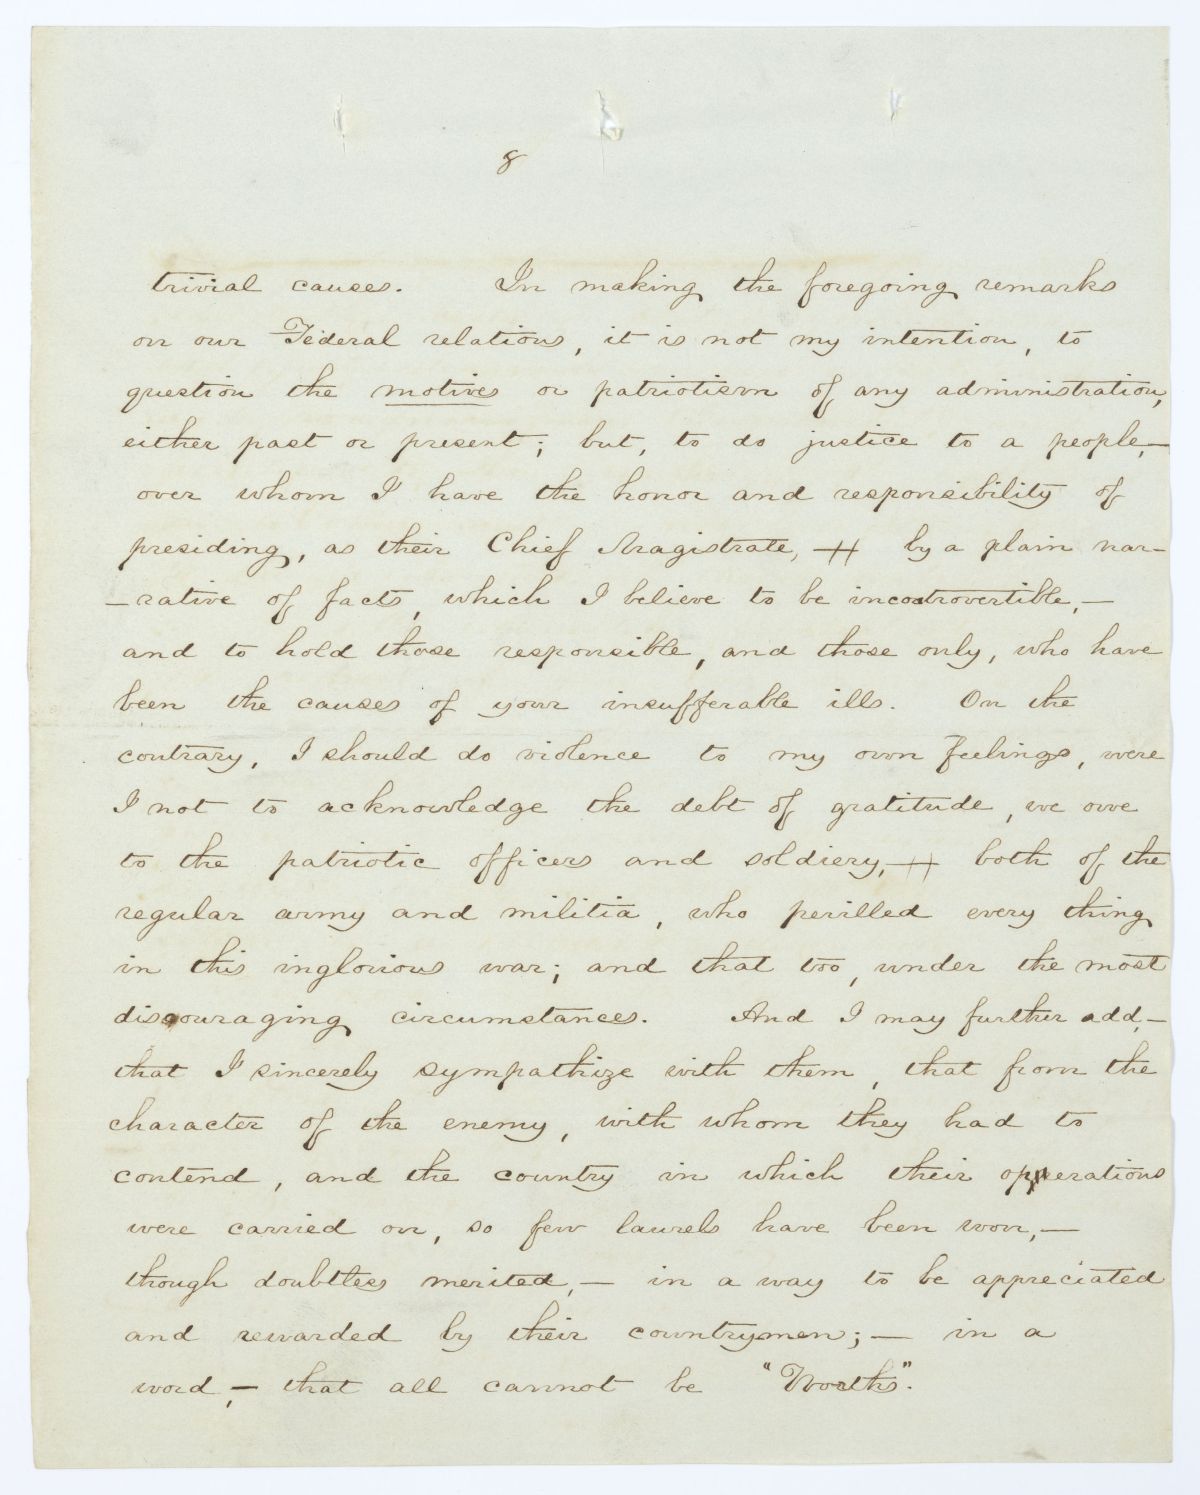 8
trivial causes. In making the foregoing remarks
on our Federal relations, it is not my intention, to
question the motives or patriotism of any administration,
either past or present; but, to do justice to a people,—
over whom I have the honor and responsibility of
presiding, as their Chief Magistrate, — by a plain nar-
-rative of facts, which I believe to be incontrovertible,—
and to hold those responsible, and those only, who have
been the causes of your insufferable ills. On the
contrary, I should do violence to my own feelings, were
I not to acknowledge the debt of gratitude, we owe
to the patriotic officers and soldiery, — both of the
regular army and militia, who perilled every thing
in this inglorious war; and that too, under the most
discouraging circumstances. And I may further add,—
that I sincerely sympathize with them, that from the
character of the enemy, with whom they had to
contend, and the country in which their opperations
were carried on, so few laurels have been won,—
though doubtless merited,— in a way to be appreciated
and rewarded by their countrymen;— in a
word,— that all cannot be "Worths".